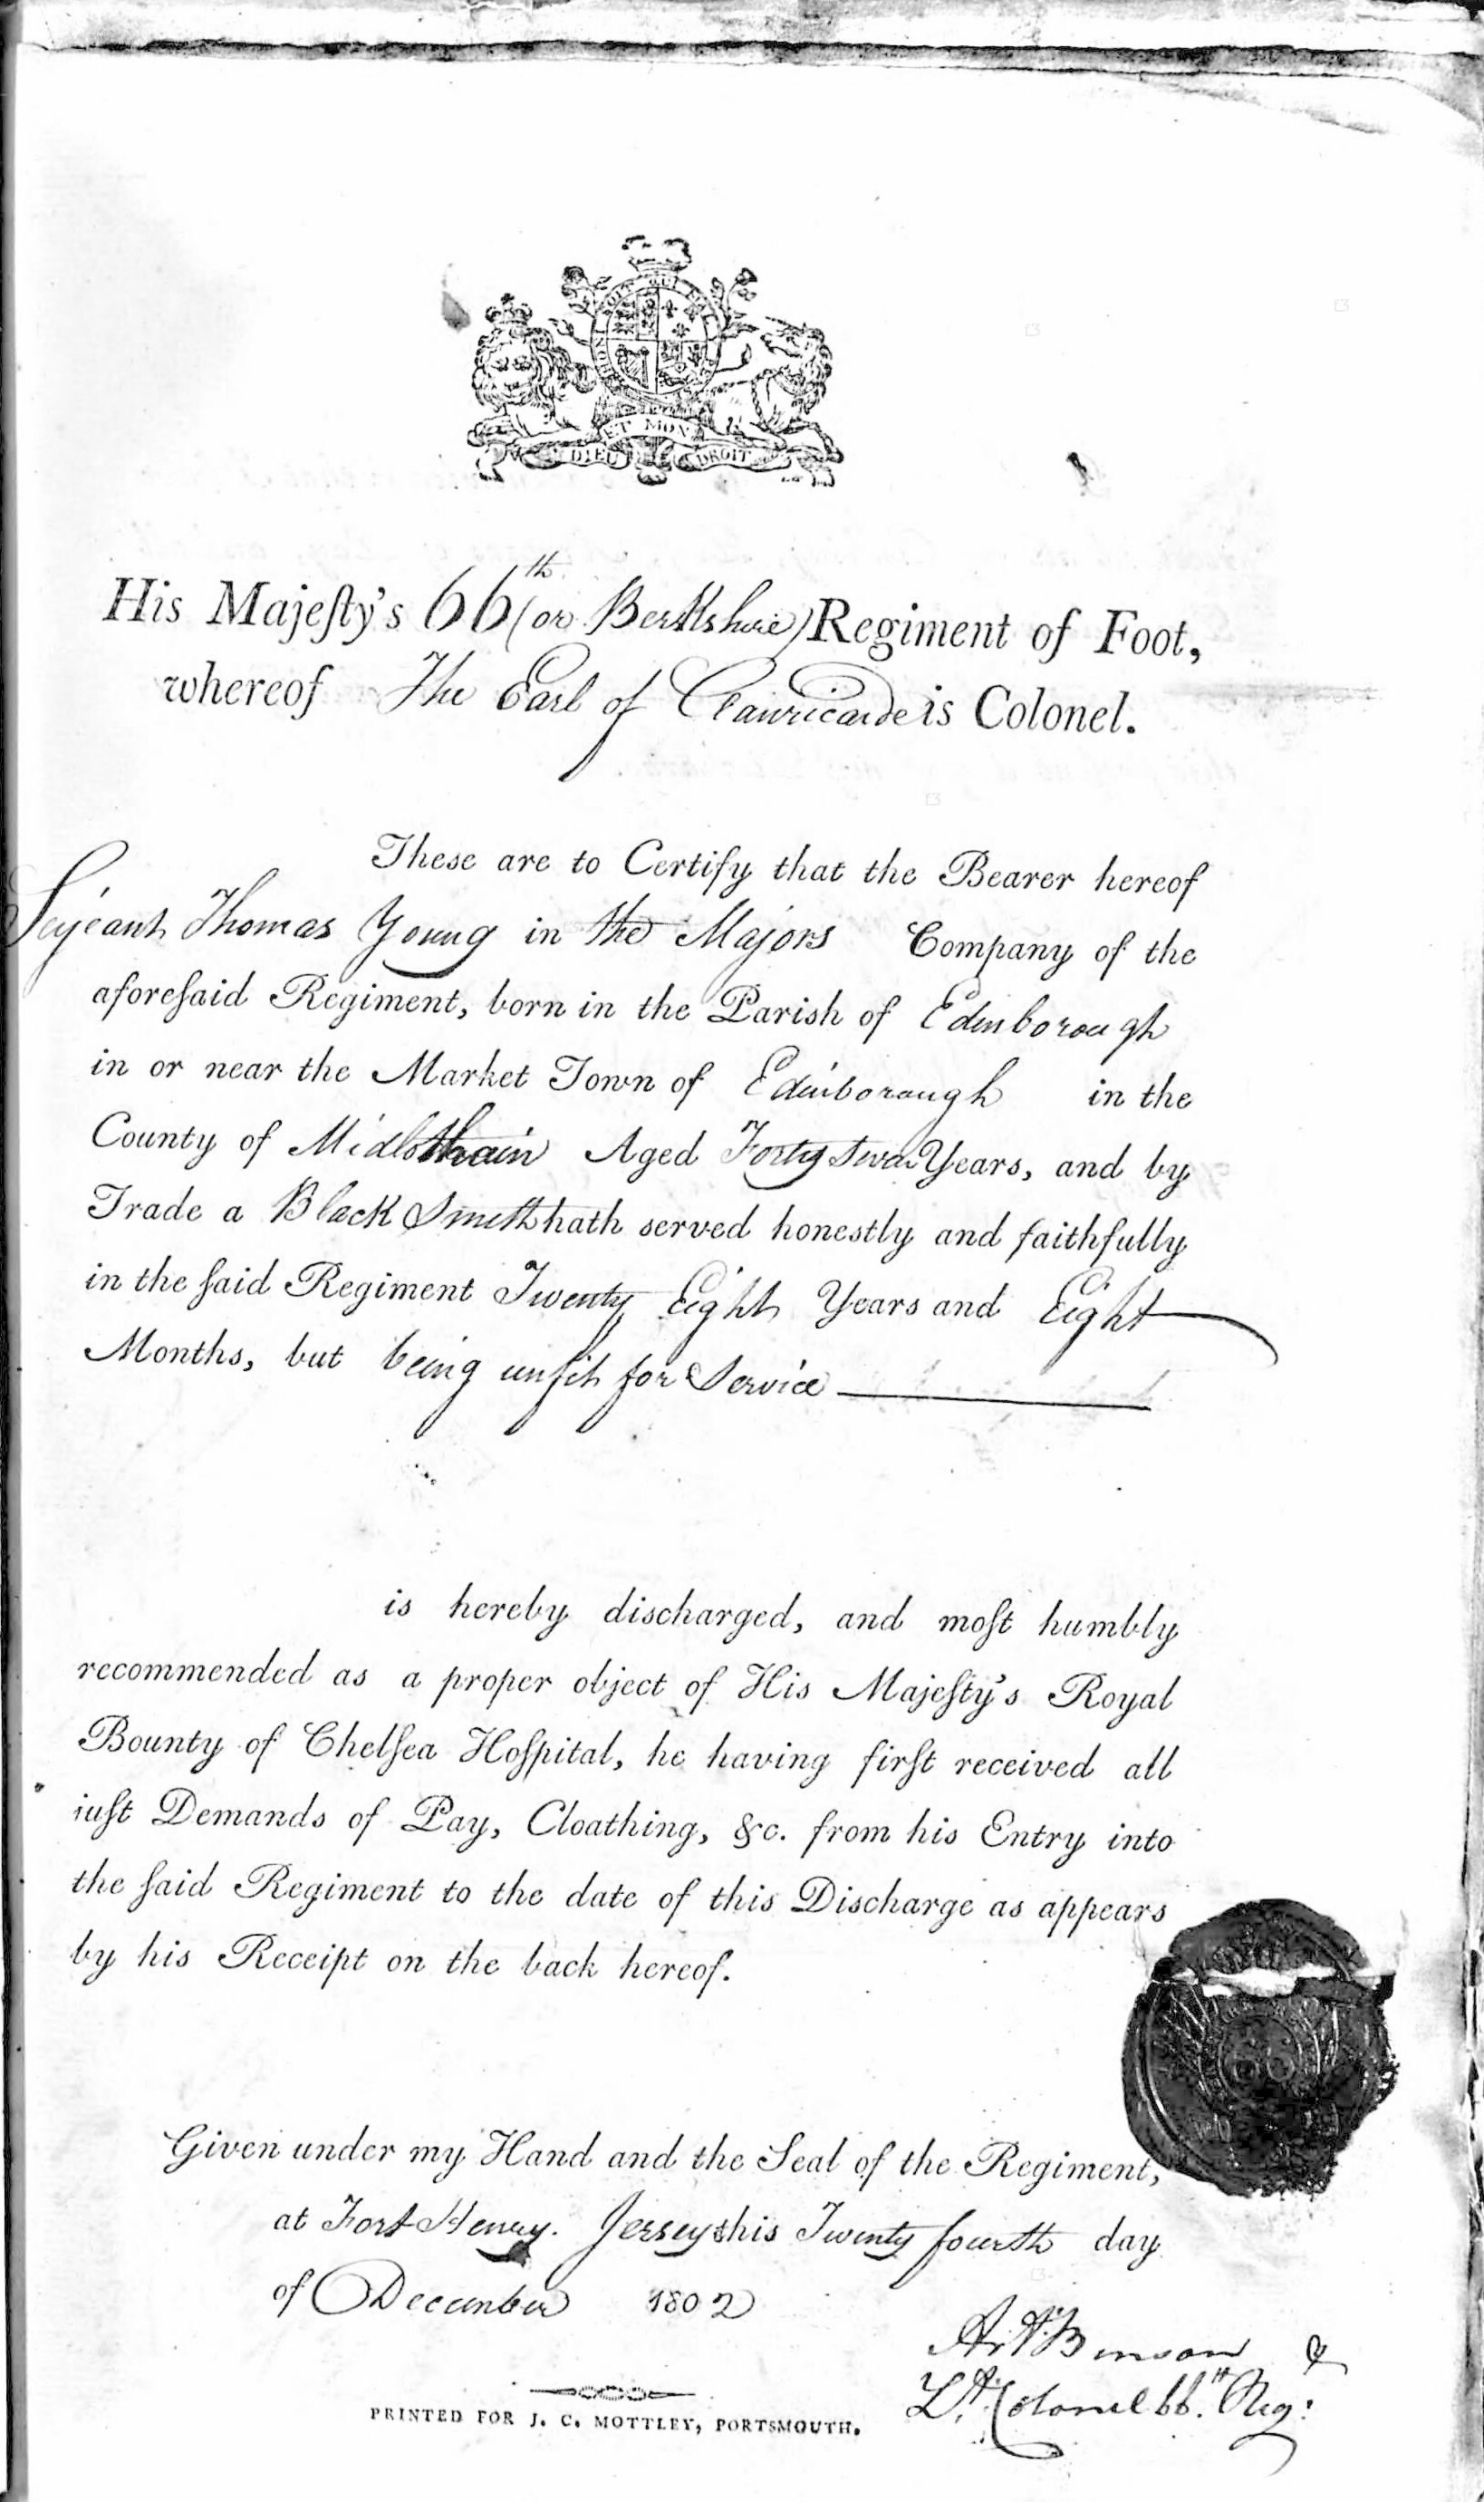 HONI SOIT QUI MAL
ET MON
DIEU DROIT
His Majeſty's 66th (or Berkshire) Regiment of Foot,
whereof The Earl of Clanricarde is Colonel.
These are to Certify that the Bearer hereof
Serjeant Thomas Young in the Majors Company of the
aforeſaid Regiment, born in the Parish of Edinborough
in or near the Market Town of Edinborough in the
County of Midlothain Aged Forty two Years, and by
Trade a Black Smith hath served honestly and faithfully
in the ſaid Regiment Twenty Eight Years and Eight
Months, but being unfit for Service
is hereby discharged, and moſt humbly
recommended as a proper object of His Majeſty's Royal
Bounty of Chelſea Hoſpital, he having firſt received all
juſt Demands of Pay, Cloathing, &c. from his Entry into
the ſaid Regiment to the date of this Discharge as appears
by his Receipt on the back hereof.
Given under my Hand and the Seal of the Regiment,
at Fort Henry. Jersey this Twenty fourth day
of December 1802
Art. Benson
Lt. Colonel 66th Reg:
PRINTED FOR J. C. MOTTLEY, PORTSMOUTH.